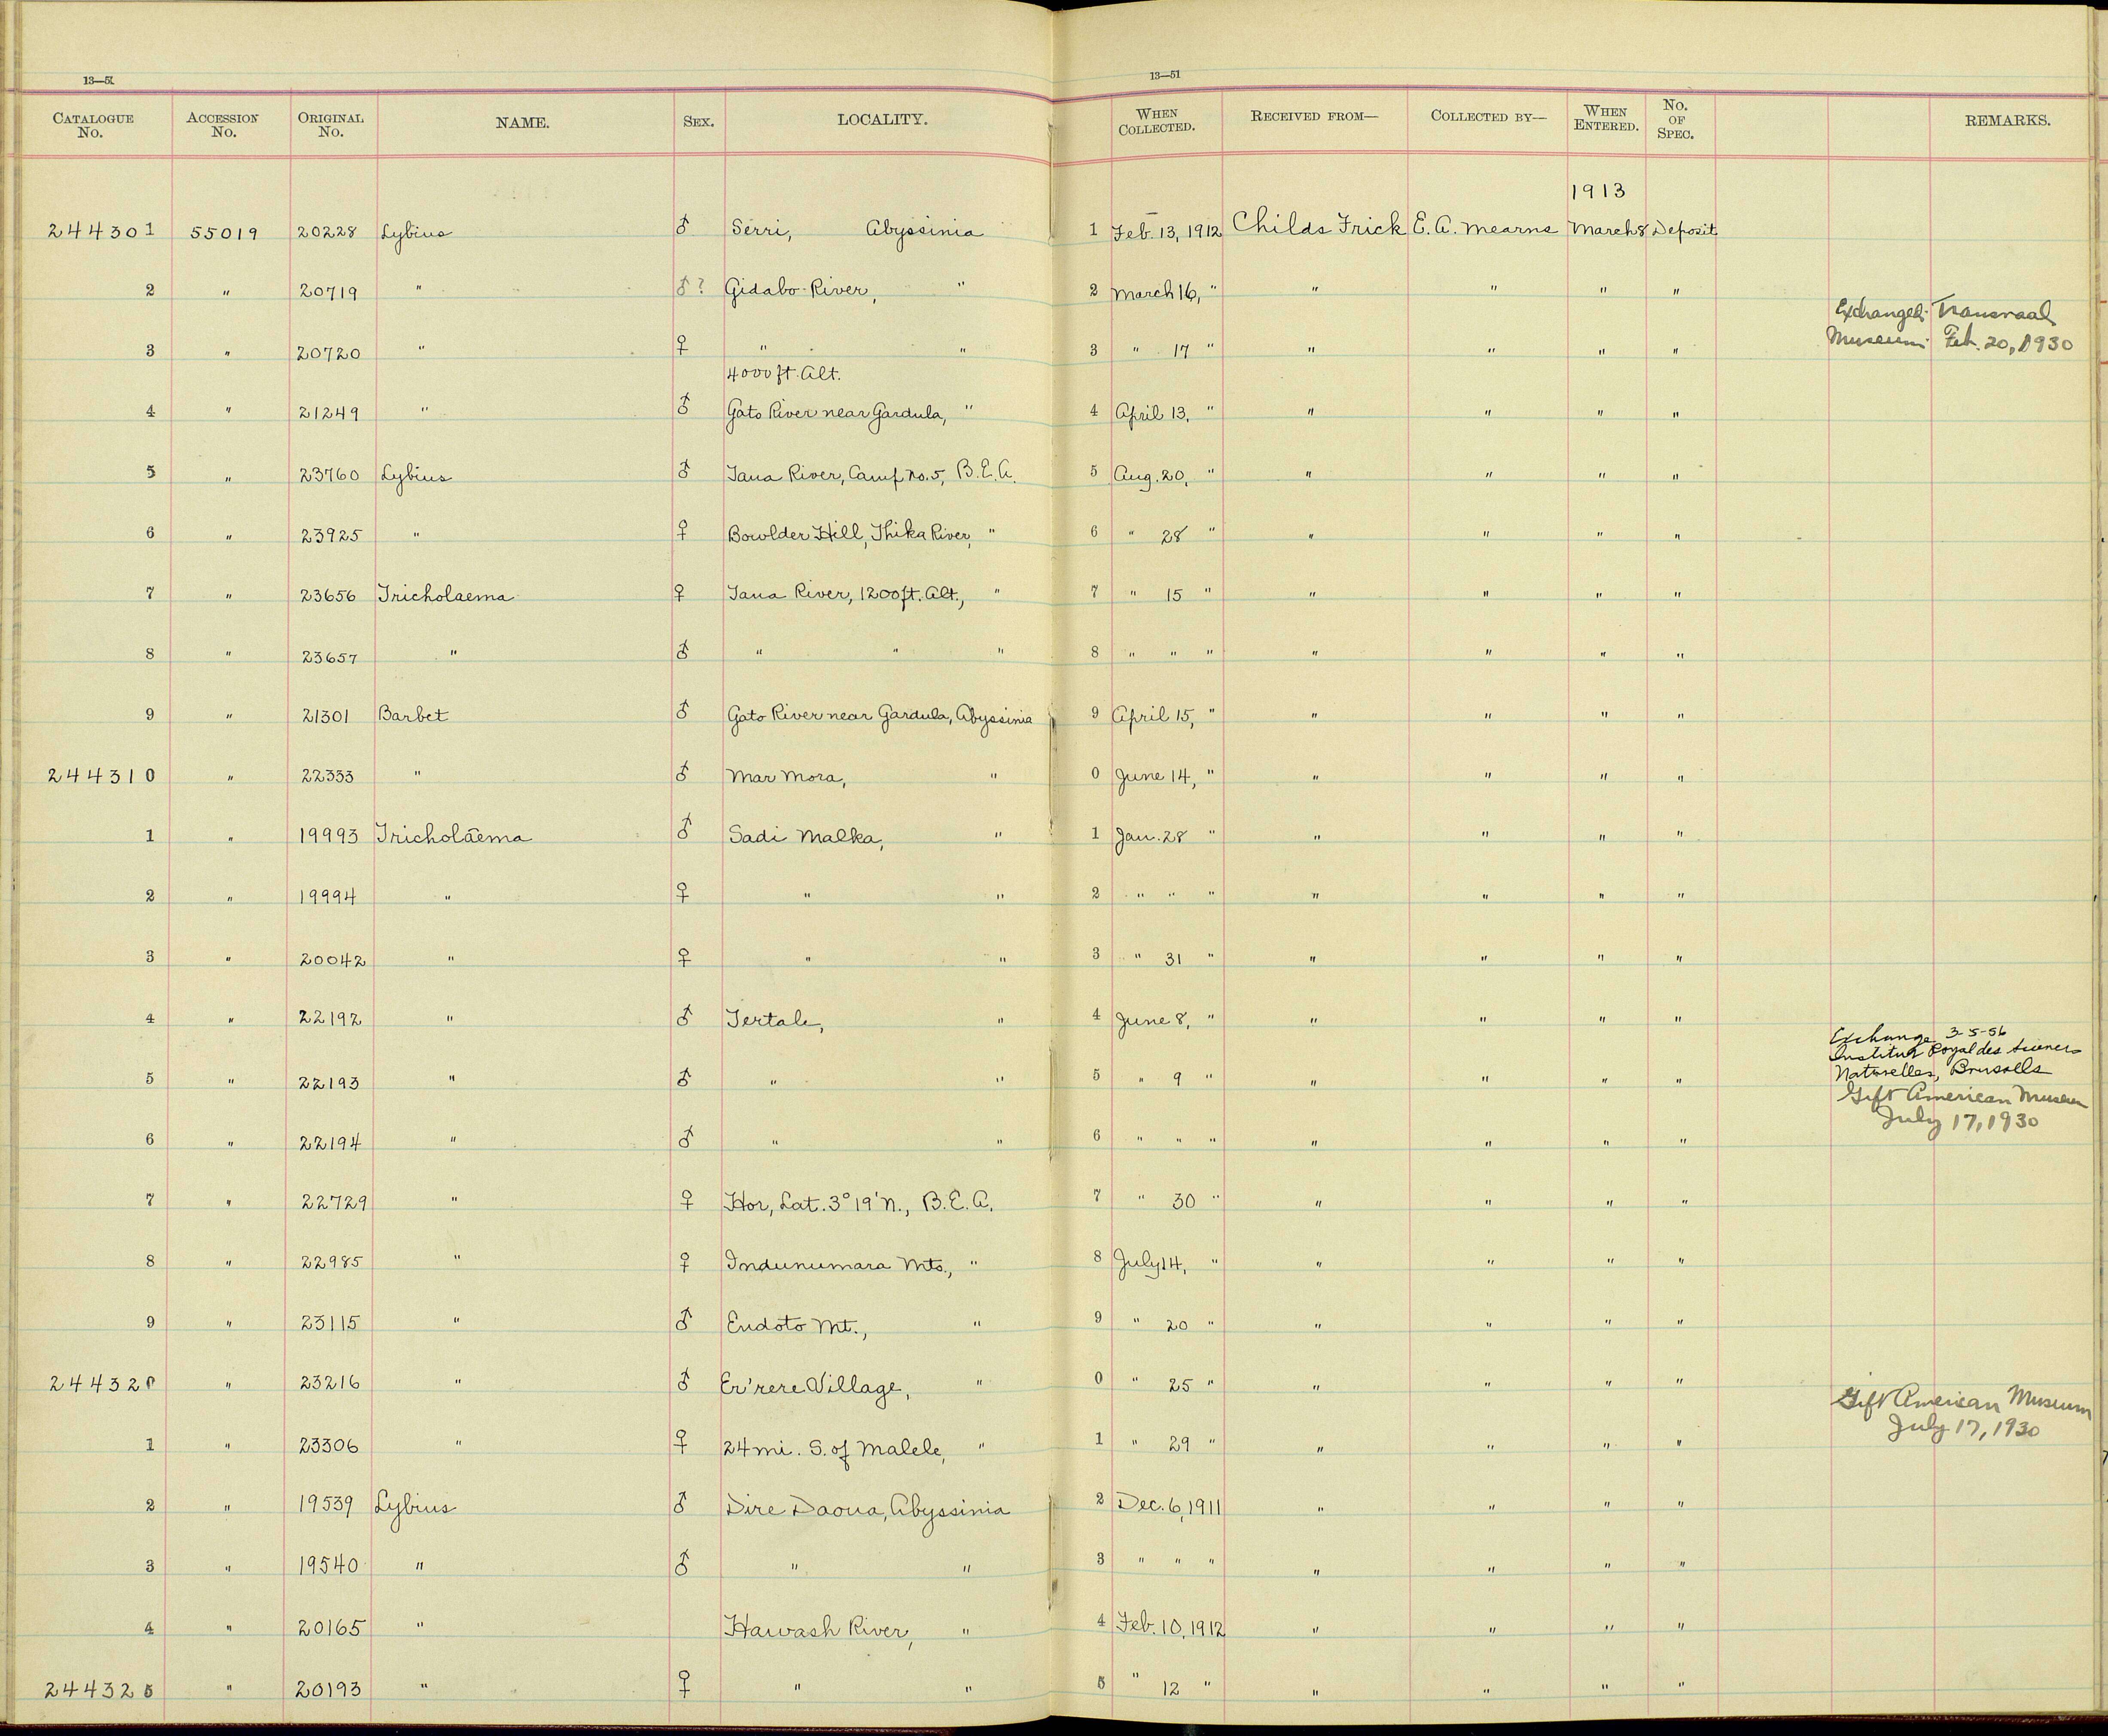 13—51 13—51
CATALOGUE No. ACCESSION No. ORIGINAL No. NAME. SEX. LOCALITY. WHEN COLLECTED. RECEIVED FROM— COLLECTED BY— WHEN ENTERED. No. OF SPEC. REMARKS.
1913
244301 55019 20228 Lybius ♂ Serri, Abyssinia 1 Feb. 13, 1912 Childs Frick E. A. Mearns March 8 Deposit
2 " 20719 " ♂? Gidabo River, " 2 March 16, " " " " "
Exchanged: Transvaal
3 " 20720 " ♀ " " 3 " 17 " " " " " Museum Feb. 20, 1930
4000 ft. Alt.
4 " 21249 " ♂ Gato River near Gardula, " 4 April 13, " " " " "
5 " 23760 Lybius ♂ Tana River, Camp No. 5, B.E.A. 5 Aug. 20, " " " " "
6 " 23925 " ♀ Bowlder Hill, Thika River, " 6 " 28 " " " " "
7 " 23656 Tricholaema ♀ Tana River, 1200 ft. Alt., " 7 " 15 " " " " "
8 " 23657 " ♂ " " " 8 " " " " " " "
9 " 21301 Barbet ♂ Gato River near Gardula, Abyssinia 9 April 15, " " " " "
244310 " 22333 " ♂ Mar Mora, " 0 June 14, " " " " "
1 " 19993 Tricholāema ♂ Sadi Malka, " 1 Jan. 28 " " " " "
2 " 19994 " ♀ " " 2 " " " " " " "
3 " 20042 " ♀ " " 3 " 31 " " " " "
4 " 22192 " ♂ Tertale, " 4 June 8, " " " " "
Exchange 3-5-56
Institut Royal des Sciences
5 " 22193 " ♂ " " 5 " 9 " " " " " Naturelles, Brussells
Gift American Museum
July 17, 1930
6 " 22194 " ♂ " " 6 " " " " " " "
7 " 22729 " ♀ Hor, Lat. 3° 19' N., B.E.A. 7 " 30 " " " " "
8 " 22985 " ♀ Indunumara Mts., " 8 July 14, " " " " "
9 " 23115 " ♂ Endoto Mt., " 9 " 20 " " " " "
244320 " 23216 " ♂ Er'rere Village, " 0 " 25 " " " " "
Gift American Museum
July 17, 1930
1 " 23306 " ♀ 24 mi. S. of Malele, " 1 " 29 " " " " "
2 " 19539 Lybius ♂ Dire Daoua, Abyssinia 2 Dec. 6, 1911 " " " "
3 " 19540 " ♂ " " 3 " " " " " " "
4 " 20165 " Hawash River, " 4 Feb. 10, 1912 " " " "
244325 " 20193 " ♀ " " 5 " 12 " " " " "